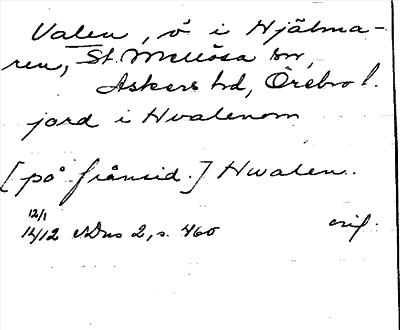 Valen, ö i Hjälma-
ren, St. Mellösa sn,
Askers hd, Örebro l.
jord i Hvalenom
[på frånsid.] Hwalen.
12/1
1412 ADns 2, s. 460 orig.